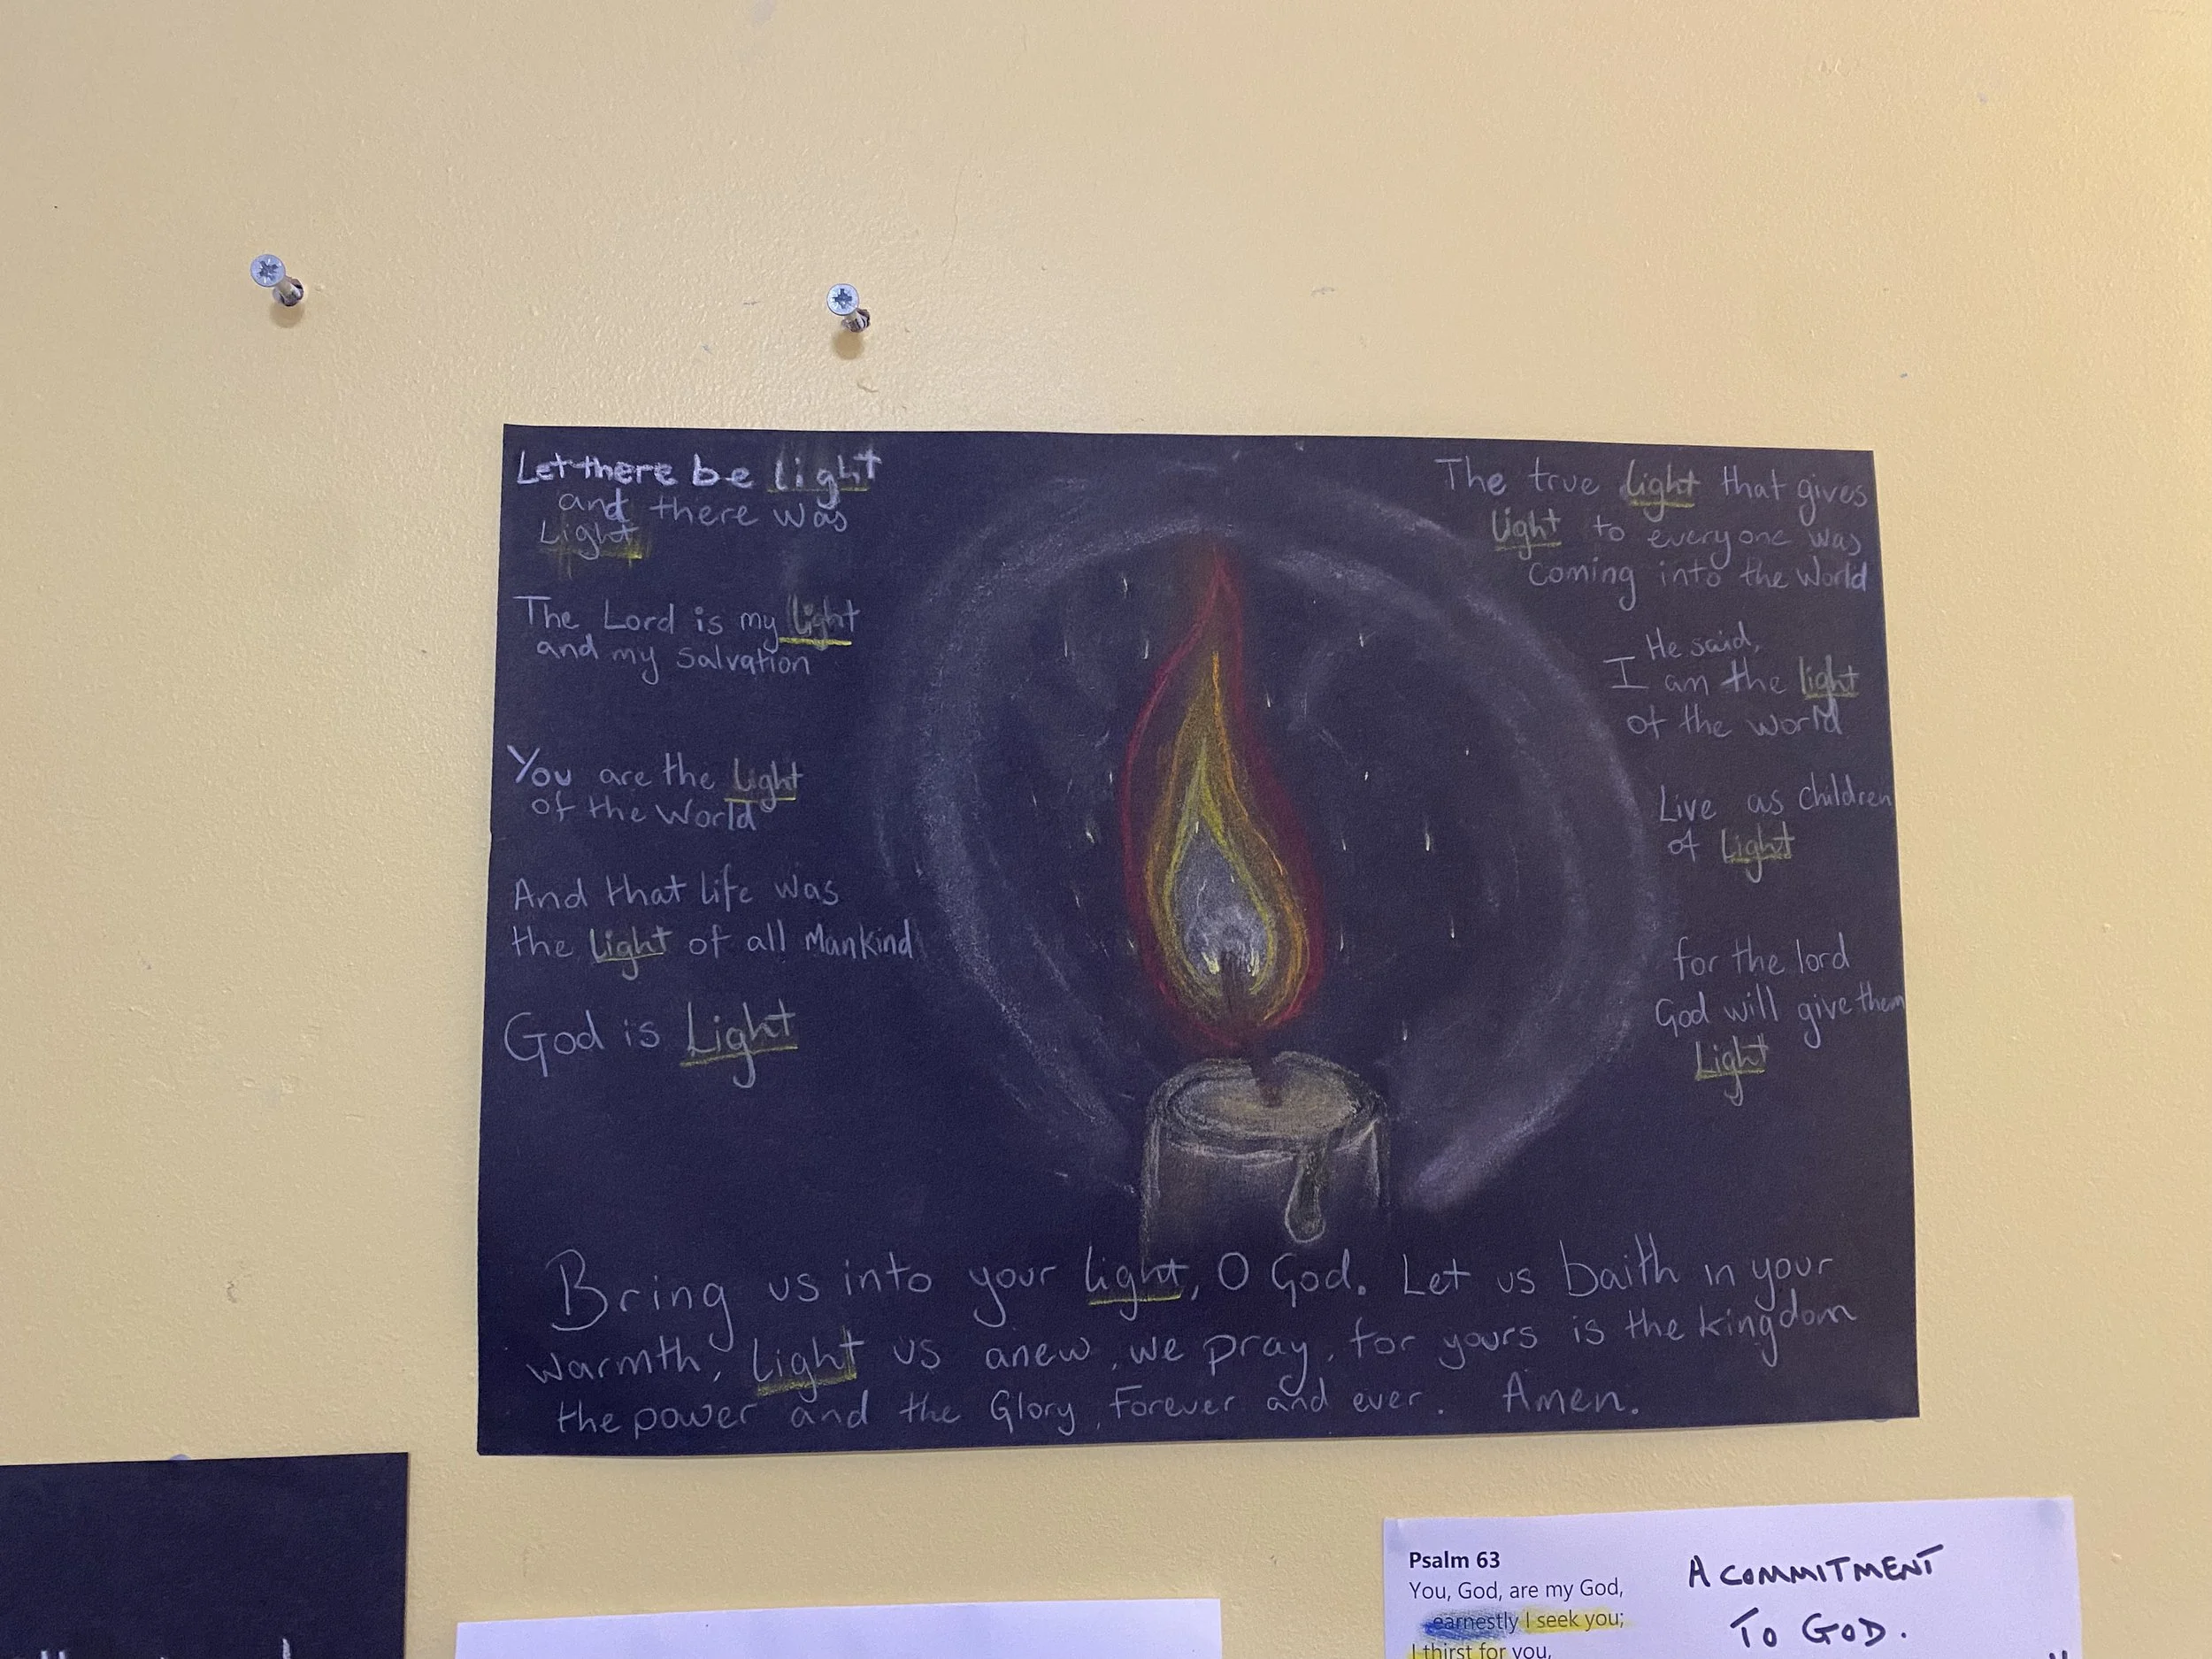 Let there be light
and there was
Light
The Lord is my light
and my salvation
You are the Light
of the World
And that life was
the Light of all Mankind
God is Light
The true light that gives
light to everyone was
coming into the World
He said,
I am the light
of the world
Live as Children
of Light
for the lord
God will give them
Light
Bring us into your light, O God. Let us baith in your
warmth, Light us anew, we pray, for yours is the kingdom
the power and the Glory, Forever and ever. Amen.
Psalm 63
You, God, are my God,
earnestly I seek you;
I thirst for you,
A COMMITMENT
TO GOD.